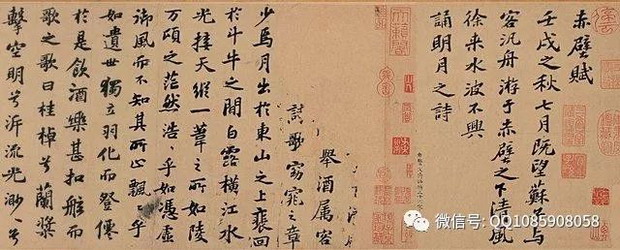 赤壁賦
壬戌之秋七月既望蘇子與
客汎舟游于赤壁之下清風
徐来水波不興
誦明月之詩
舉酒属客
歌窈窕之章
少焉月出於東山之上裴回
於斗牛之間白露橫江水
光接天縱一葦之所如陵
万頃之茫然浩〻乎如憑虛
御風而不知其所止飄〻乎
如遺世獨立羽化而登僊
於是飲酒樂甚扣舷而
歌之歌曰桂棹兮蘭槳
擊空明兮泝流光渺〻兮
微信号: QQ1085908058